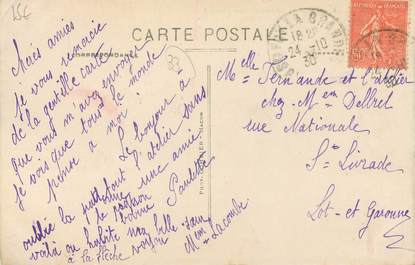 15€
CARTE POSTALE
CORRESPONDANCE
chères amies
je vous remercie
de la gentille carte
que vous m'avez envoyée
je vois que tout le monde
pense à moi !
Le bonjour à
tout l'atelier sans
oublier la patronne
une amie
Paulette
voilà où habite nez
belle-sœur
Mme Lacombe
à la flèche
18
24-10
30
50
Melle Fernande et l'atelier
chez Mme Delbrel
rue Nationale
Ste Livrade
Lot-et-Garonne